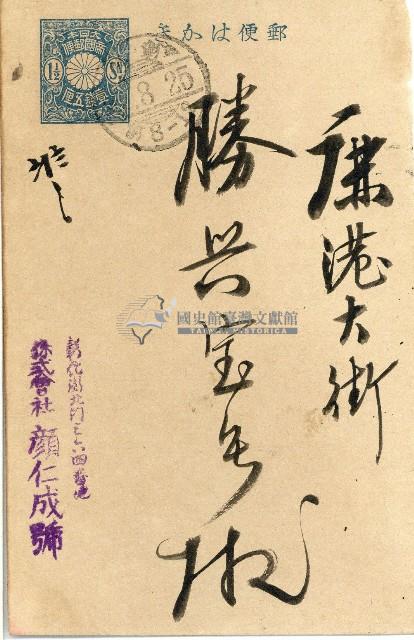 郵便はかき
大日本
帝國郵便
1½ Sn
壹錢五厘
8.25
鹿港大街
勝興寶号 殿
國史館臺灣文獻館
TAIWAN HISTORICA
彰化街北門三六四番地
株式會社 顏仁成號